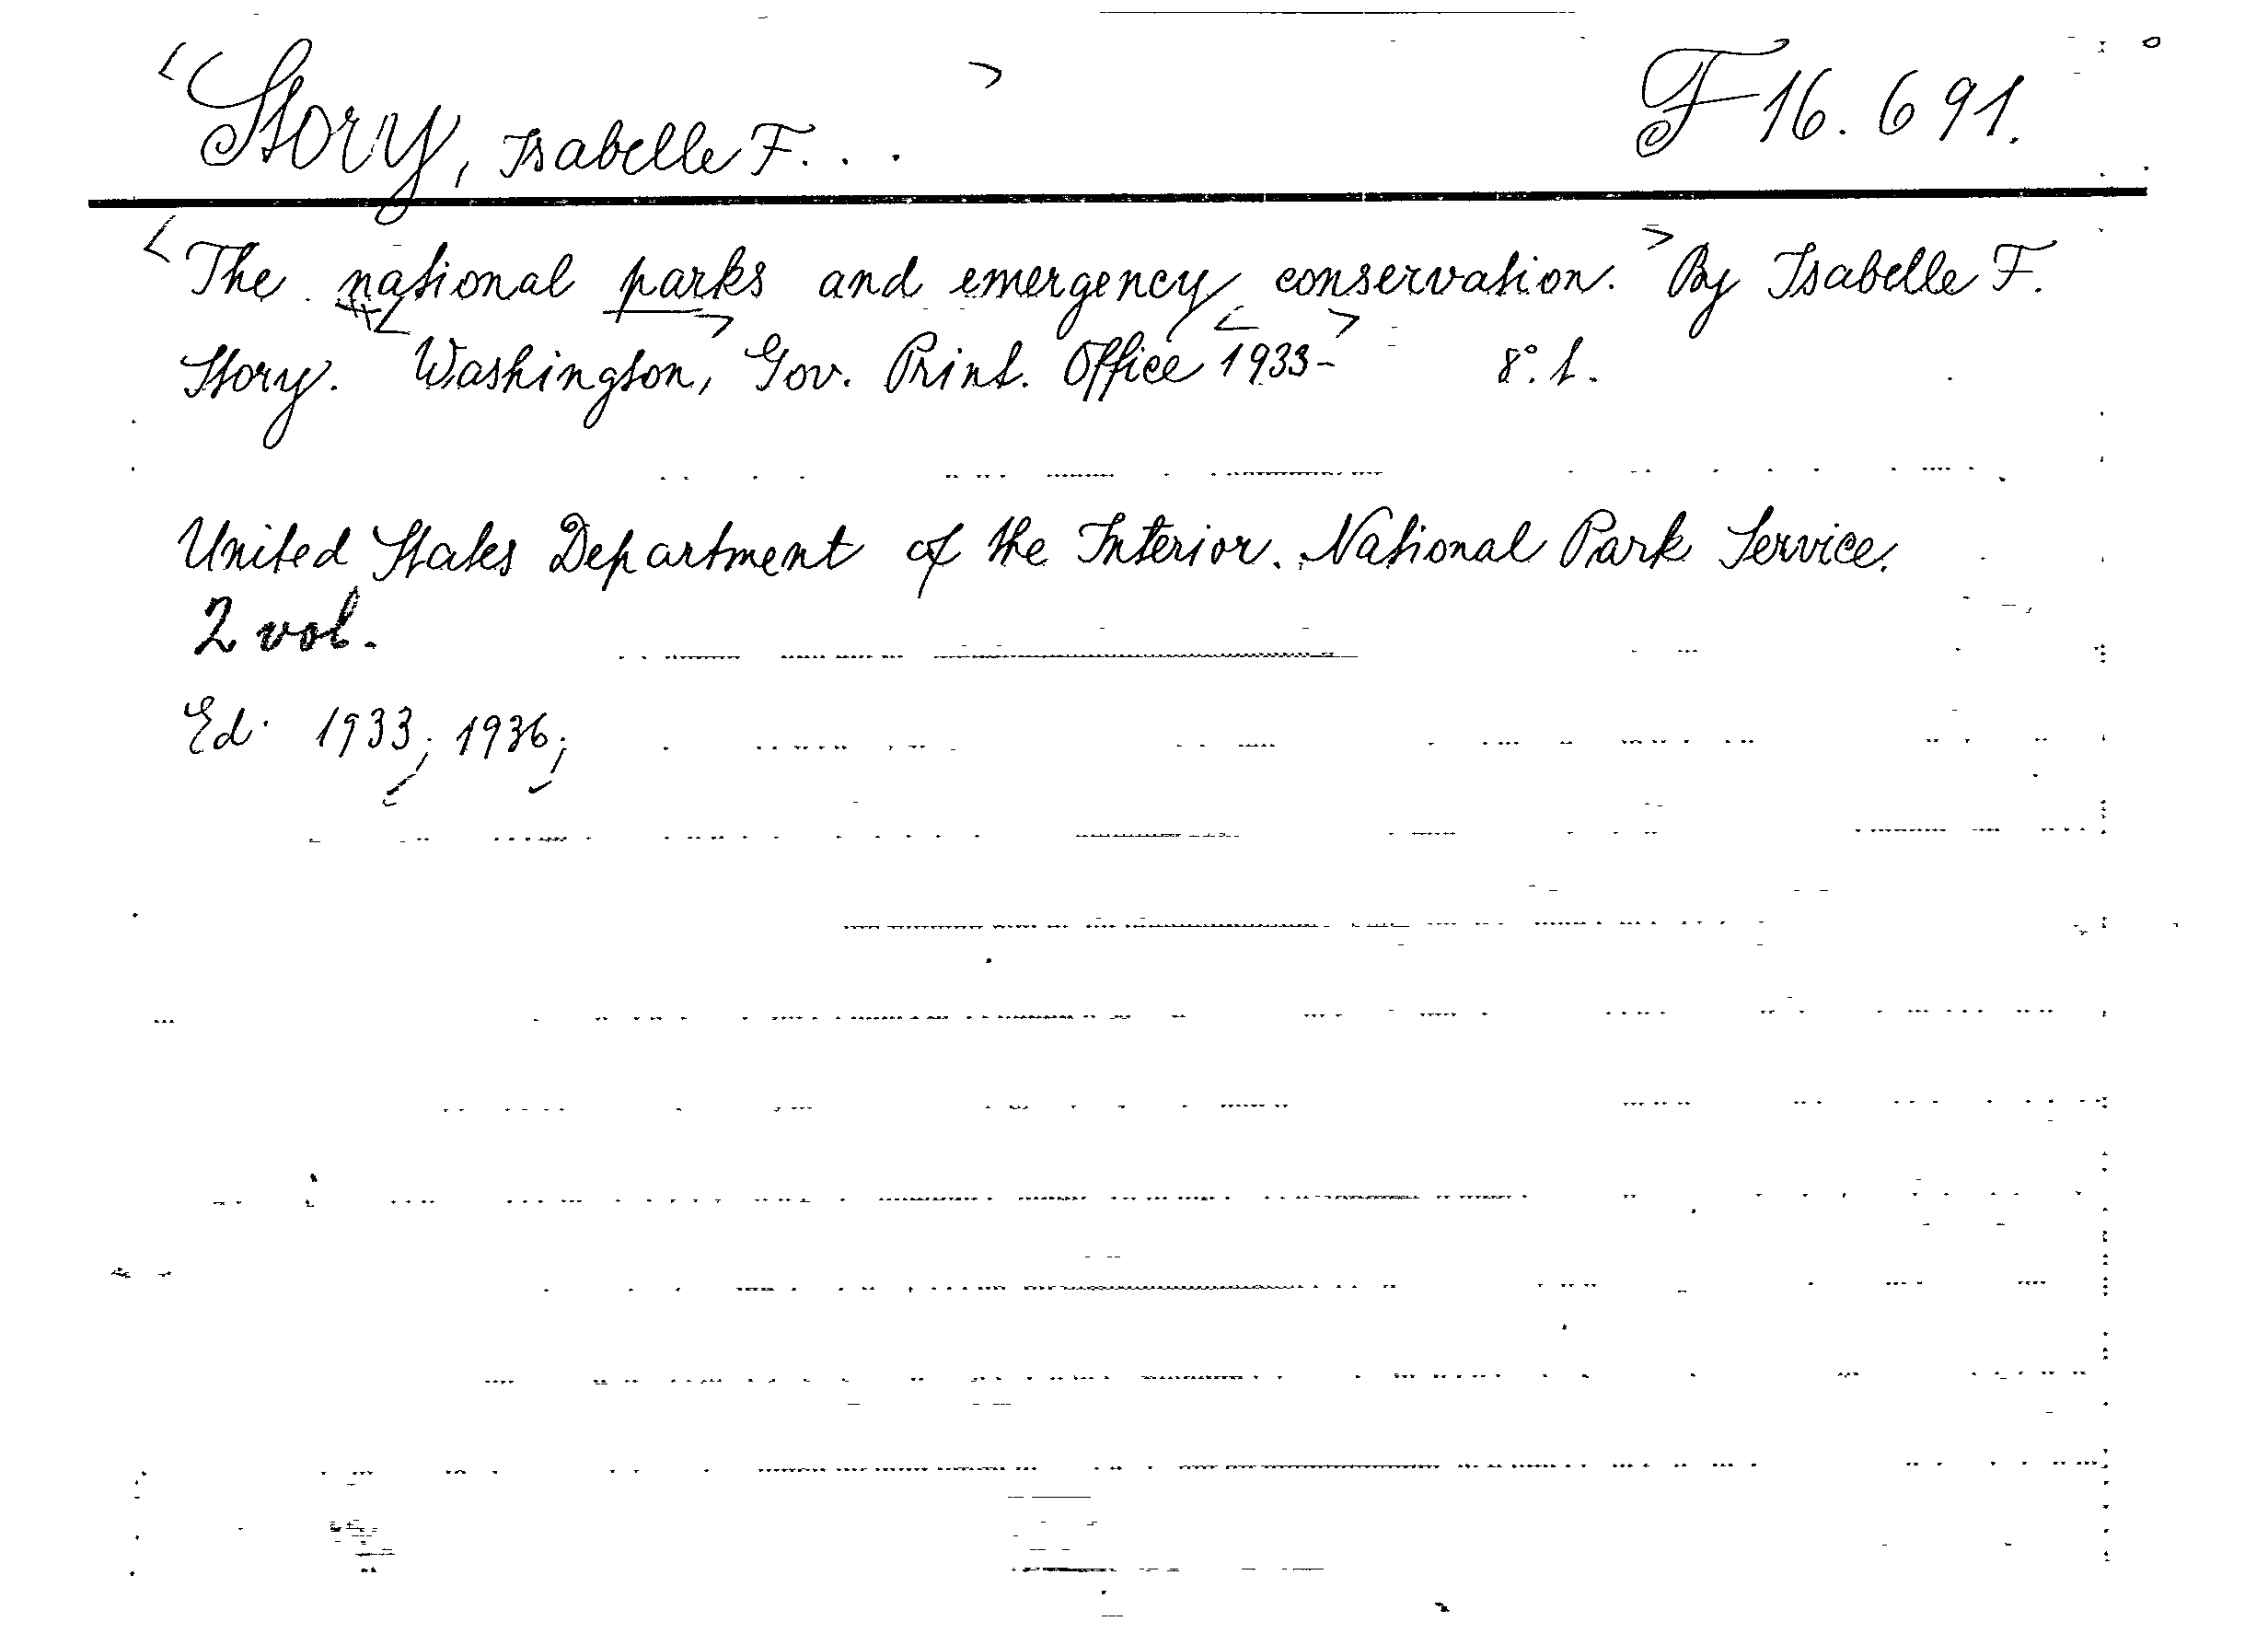 <Story, Isabelle F...> F 16.691.
<The national parks and emergency conservation.> By Isabelle F.
Story. <Washington,> Gov. Print. Office <1933-> 8°.
United States Department of the Interior. National Park Service.
2 vol.
Ed. 1933; 1936;